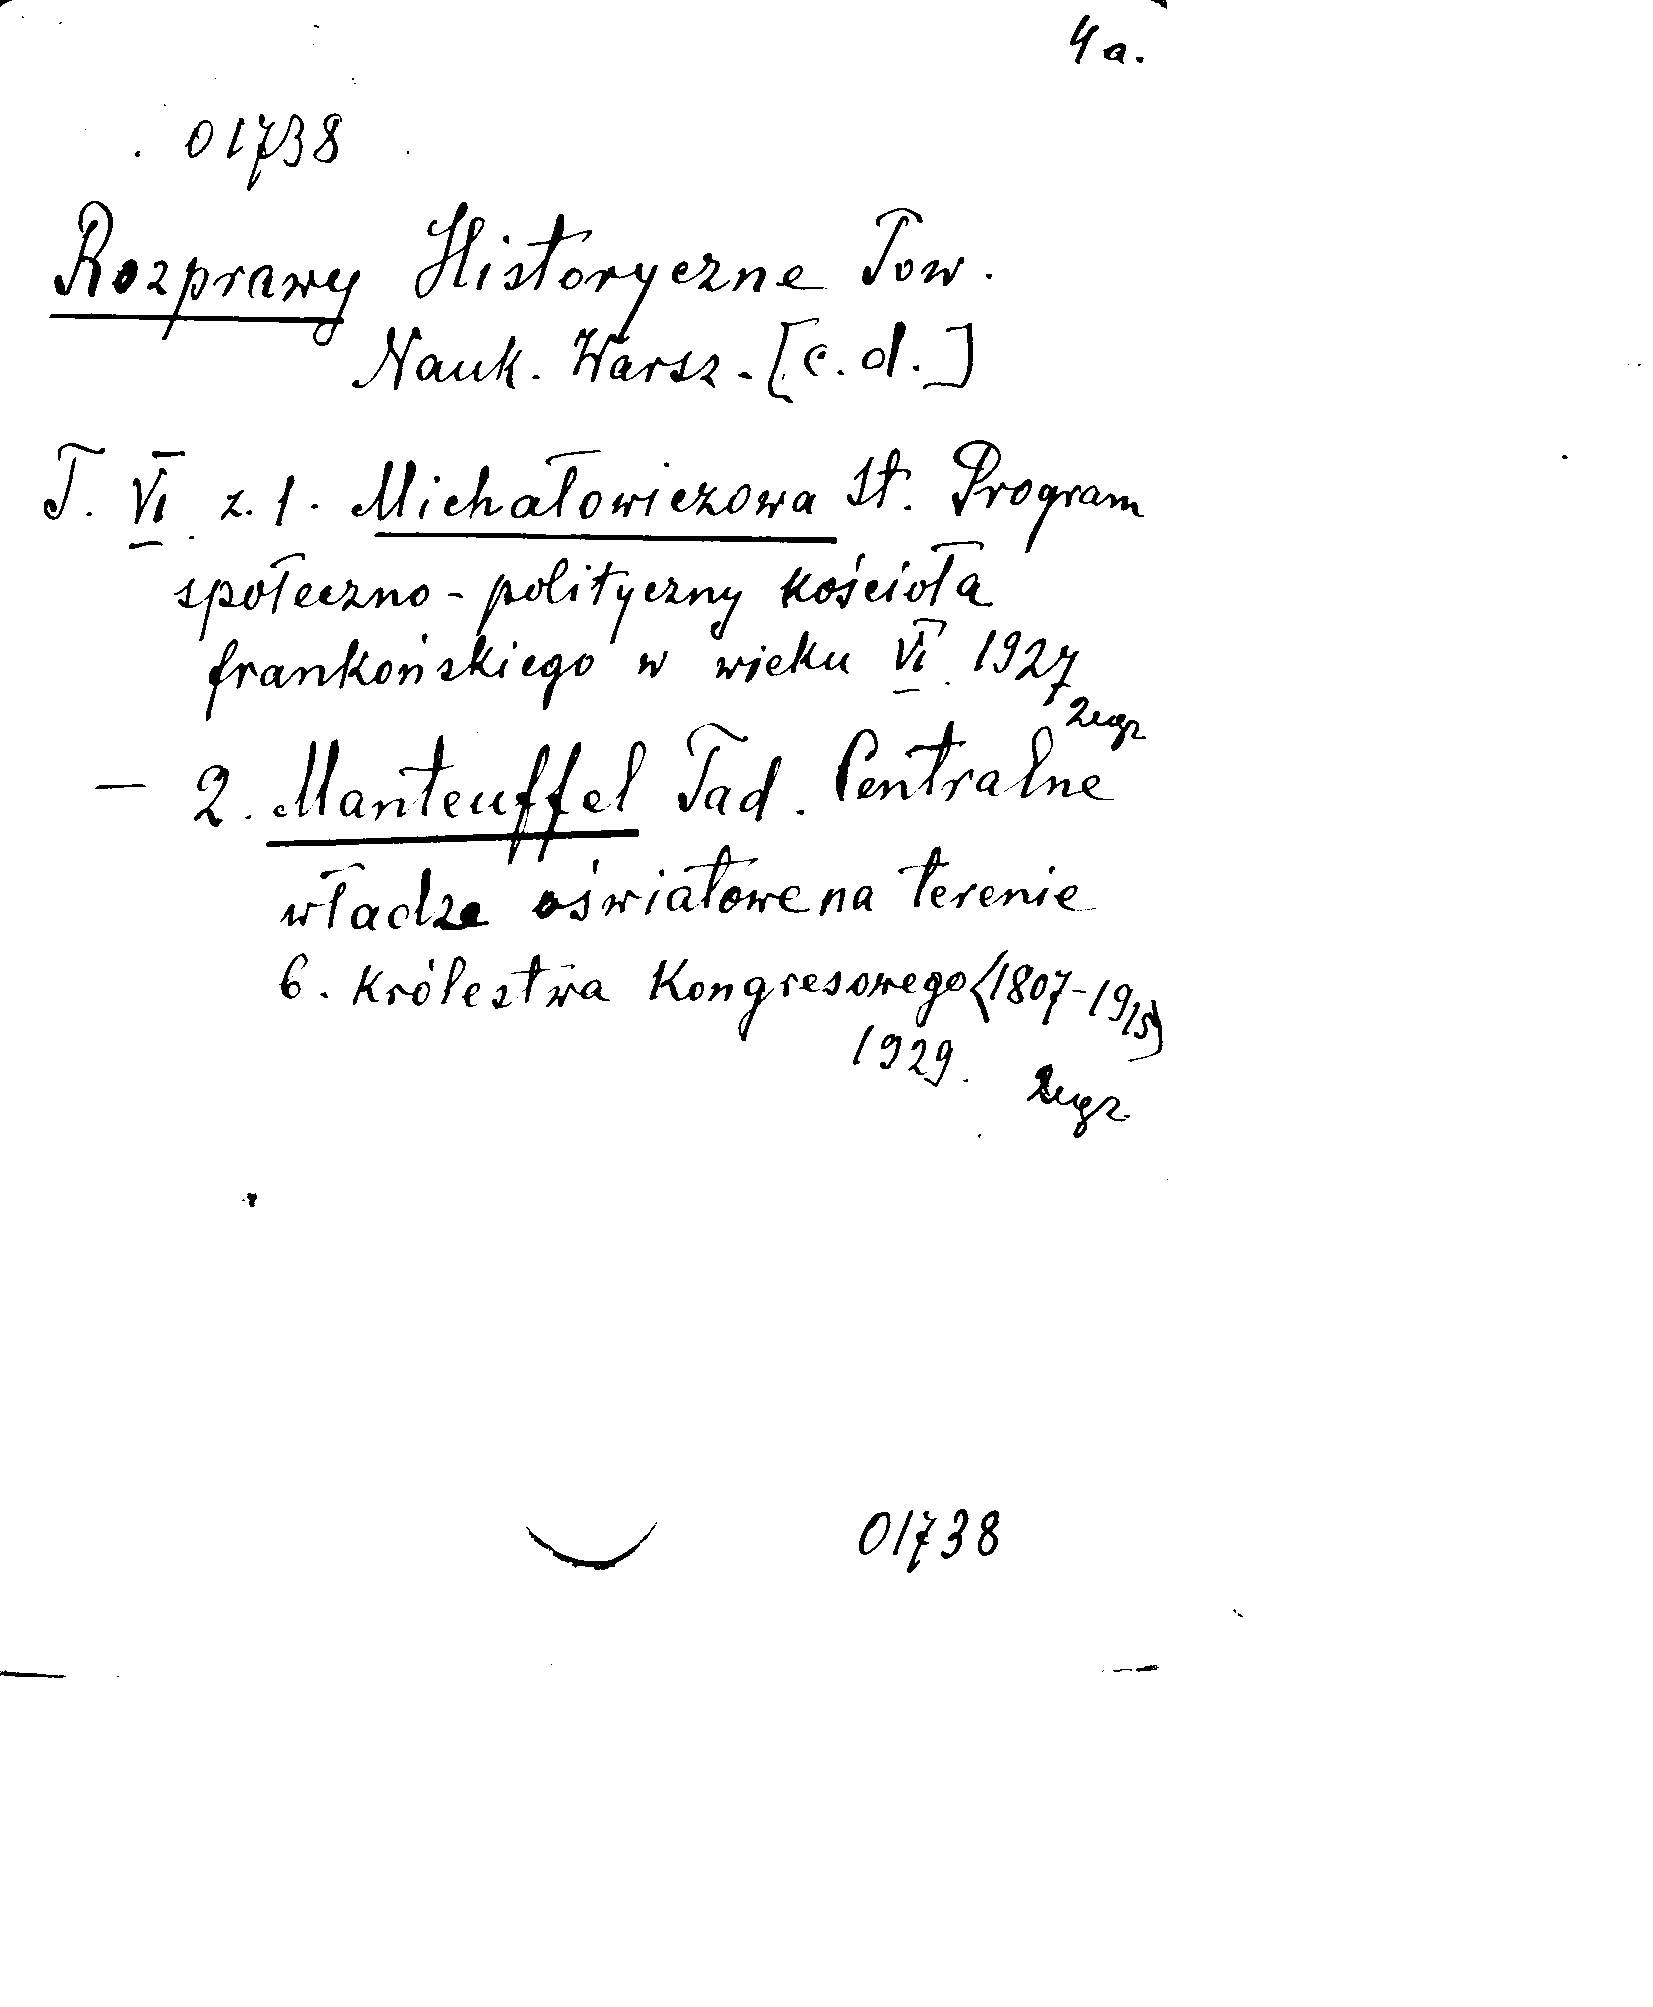 4a.
01738
Rozprawy Historyczne Tow.
Nauk. Warsz. [c. d.]
T. VI z. 1. Michałowiczowa St. Program
społeczno-polityczny kościoła
frankońskiego w wieku VI. 1927
2egz
— 2. Manteuffel Tad. Centralne
władze oświatowe na terenie
b. Królestwa Kongresowego (1807-1915)
1929.
2egz.
01738